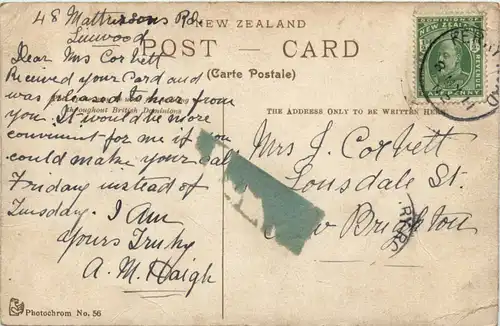 48 Mattersons Rd.
Linwood
NEW ZEALAND
POST CARD
(Carte Postale)
Dear Mrs Corbett
Received your Card and
was pleased to hear from
throughout British Dominions
you. It would be more
convenient for me if you
could make your call
Friday instead of
Tuesday. I Am
Yours Truly
A. M. Haigh
THE ADDRESS ONLY TO BE WRITTEN HERE
Mrs J. Corbett
Lonsdale St.
New Brighton
DOMINION OF
NEW ZEALAND
Photochrom No. 56